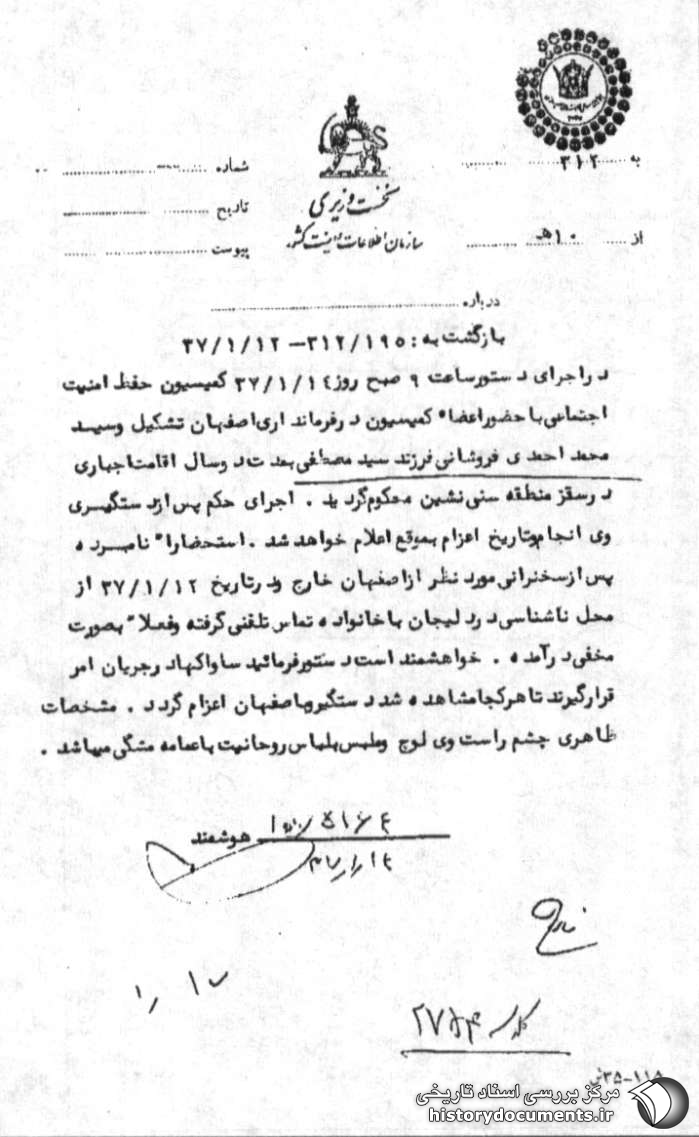 به ۳۱۲
شماره
نخست وزیری
تاریخ
سازمان اطلاعات و امنیت کشور
از ۱۰ هـ
پیوست
درباره
بازگشت به : ۳۱۲/۱۹۵ – ۳۷/۱/۱۲
در اجرای دستور ساعت ۹ صبح روز ۳۷/۱/۱٤ کمیسیون حفظ امنیت
اجتماعی با حضور اعضاء کمیسیون در فرمانداری اصفهان تشکیل و سید
محمد احمدی فروشانی فرزند سید مصطفی بمدت دو سال اقامت اجباری
در سقز منطقه سنی نشین محکوم گردید . اجرای حکم پس از دستگیری
وی انجام و تاریخ اعزام بموقع اعلام خواهد شد . استحضاراً نامبرده
پس از سخنرانی مورد نظر از اصفهان خارج و در تاریخ ۳۷/۱/۱۲ از
محل ناشناسی در دلیجان با خانواده تماس تلفنی گرفته و فعلاً بصورت
مخفی درآمده . خواهشمند است دستور فرمائید ساواکها در جریان امر
قرار گیرند تا هر کجا مشاهده شد دستگیر و باصفهان اعزام گردد . مشخصات
ظاهری چشم راست وی لوچ و ملبس بلباس روحانیت با عمامه مشکی میباشد .
هوشمند
۳۵-۱۱۸
مرکز بررسی اسناد تاریخی
historydocuments.ir